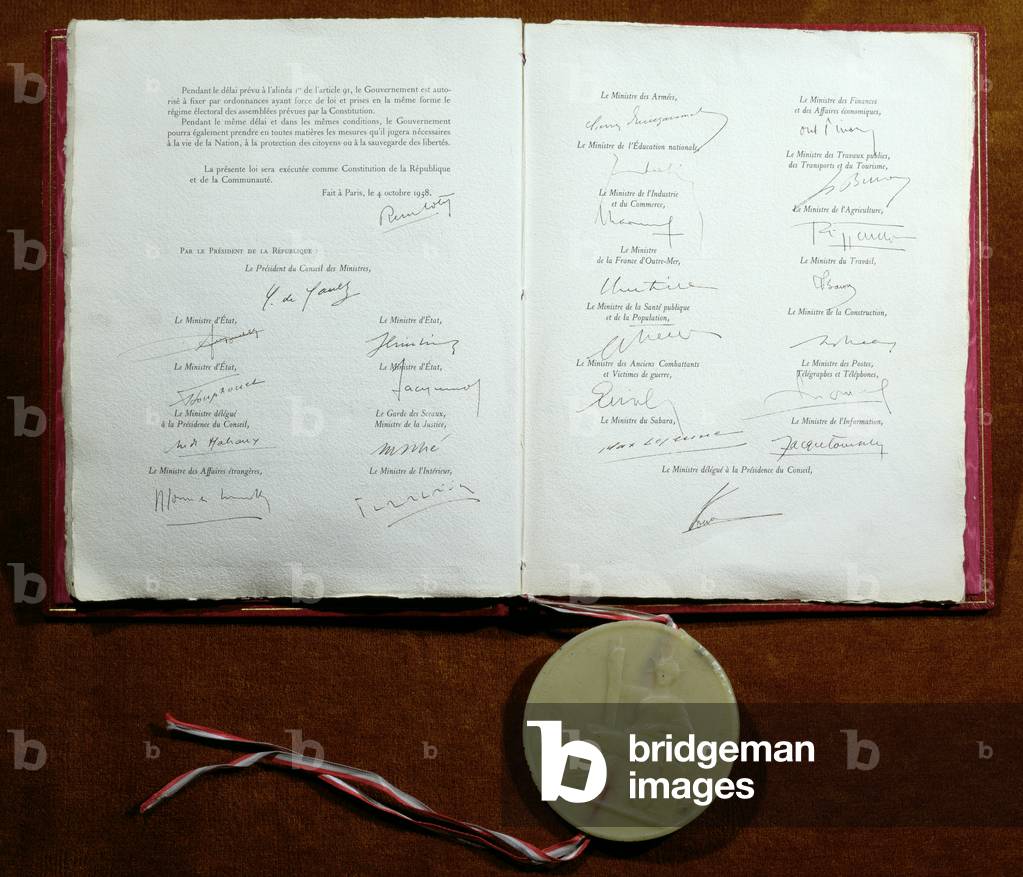 Pendant le délai prévu à l'alinéa 1er de l'article 91, le Gouvernement est auto-
risé à fixer par ordonnances ayant force de loi et prises en la même forme le
régime électoral des assemblées prévues par la Constitution.
Pendant le même délai et dans les mêmes conditions, le Gouvernement
pourra également prendre en toutes matières les mesures qu'il jugera nécessaires
à la vie de la Nation, à la protection des citoyens ou à la sauvegarde des libertés.
La présente loi sera exécutée comme Constitution de la République
et de la Communauté.
Fait à Paris, le 4 octobre 1958.
Par le Président de la République :
Le Président du Conseil des Ministres,
C. de Gaulle
Le Ministre d'État,
Le Ministre d'État,
Le Ministre d'État,
Le Ministre d'État,
Jacquinot
Le Ministre délégué
à la Présidence du Conseil,
Le Garde des Sceaux,
Ministre de la Justice,
Le Ministre des Affaires étrangères,
Le Ministre de l'Intérieur,
Le Ministre des Armées,
Le Ministre de l'Éducation nationale,
Le Ministre de l'Industrie
et du Commerce,
Le Ministre
de la France d'Outre-Mer,
Le Ministre de la Santé publique
et de la Population,
Le Ministre des Anciens Combattants
et Victimes de guerre,
Le Ministre du Sahara,
Max Lejeune
Le Ministre des Finances
et des Affaires économiques,
Le Ministre des Travaux publics,
des Transports et du Tourisme,
Le Ministre de l'Agriculture,
Le Ministre du Travail,
Le Ministre de la Construction,
Le Ministre des Postes,
Télégraphes et Téléphones,
Le Ministre de l'Information,
Le Ministre délégué à la Présidence du Conseil,
b bridgeman
images